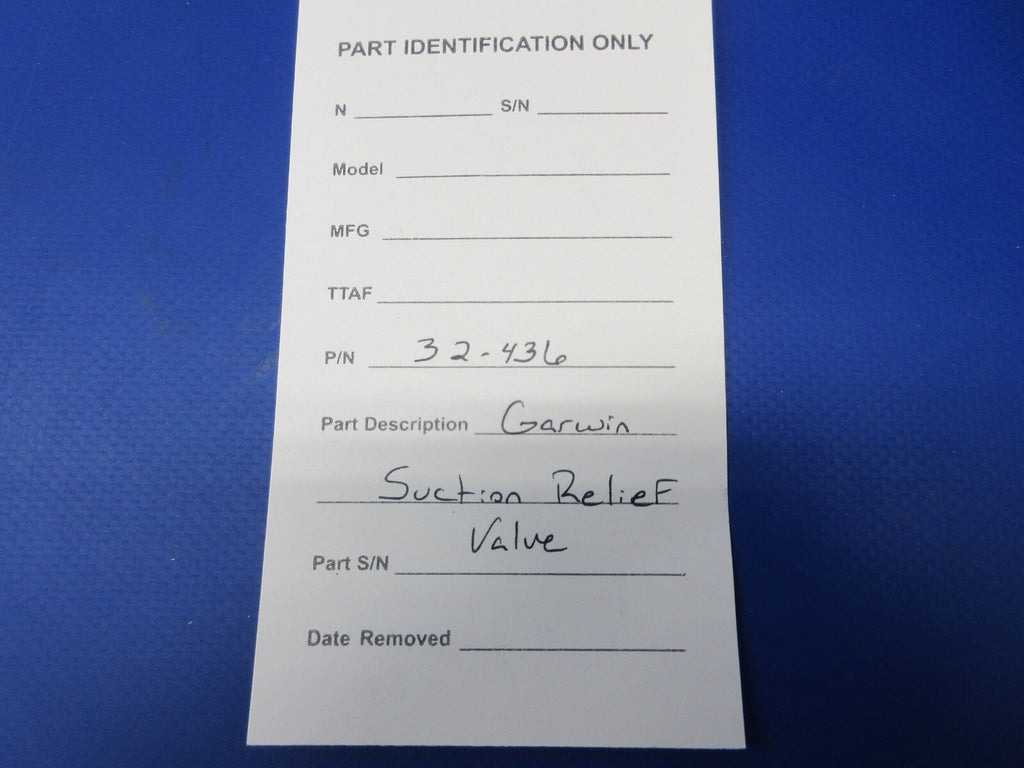 PART IDENTIFICATION ONLY
N S/N
Model
MFG
TTAF
P/N 32-436
Part Description Garwin
Suction Relief
Valve
Part S/N
Date Removed